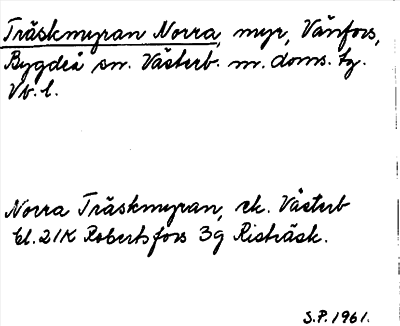 Träskmyran Norra, myr, Vänfors,
Bygdeå sn. Västerb. m. doms. tg.
Vb. l.
Norra Träskmyran, ek. Västerb
bl. 21K Robertsfors 3g Risträsk.
S.P. 1961.